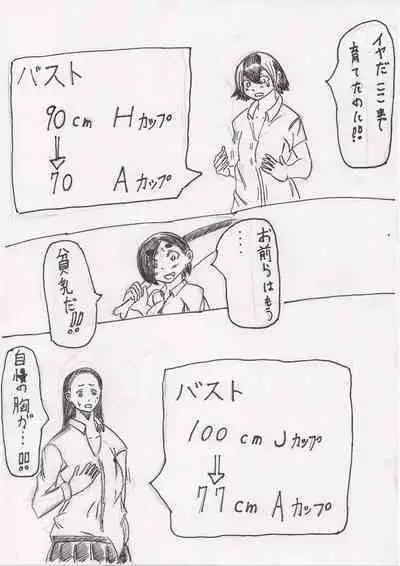 イヤだここまで
育てたのに!!
バスト
90cm Hカップ
70 Aカップ
お前らはもう
…
貧乳だ!!
バスト
100cm Jカップ
77cm Aカップ
自慢の
胸が…!!